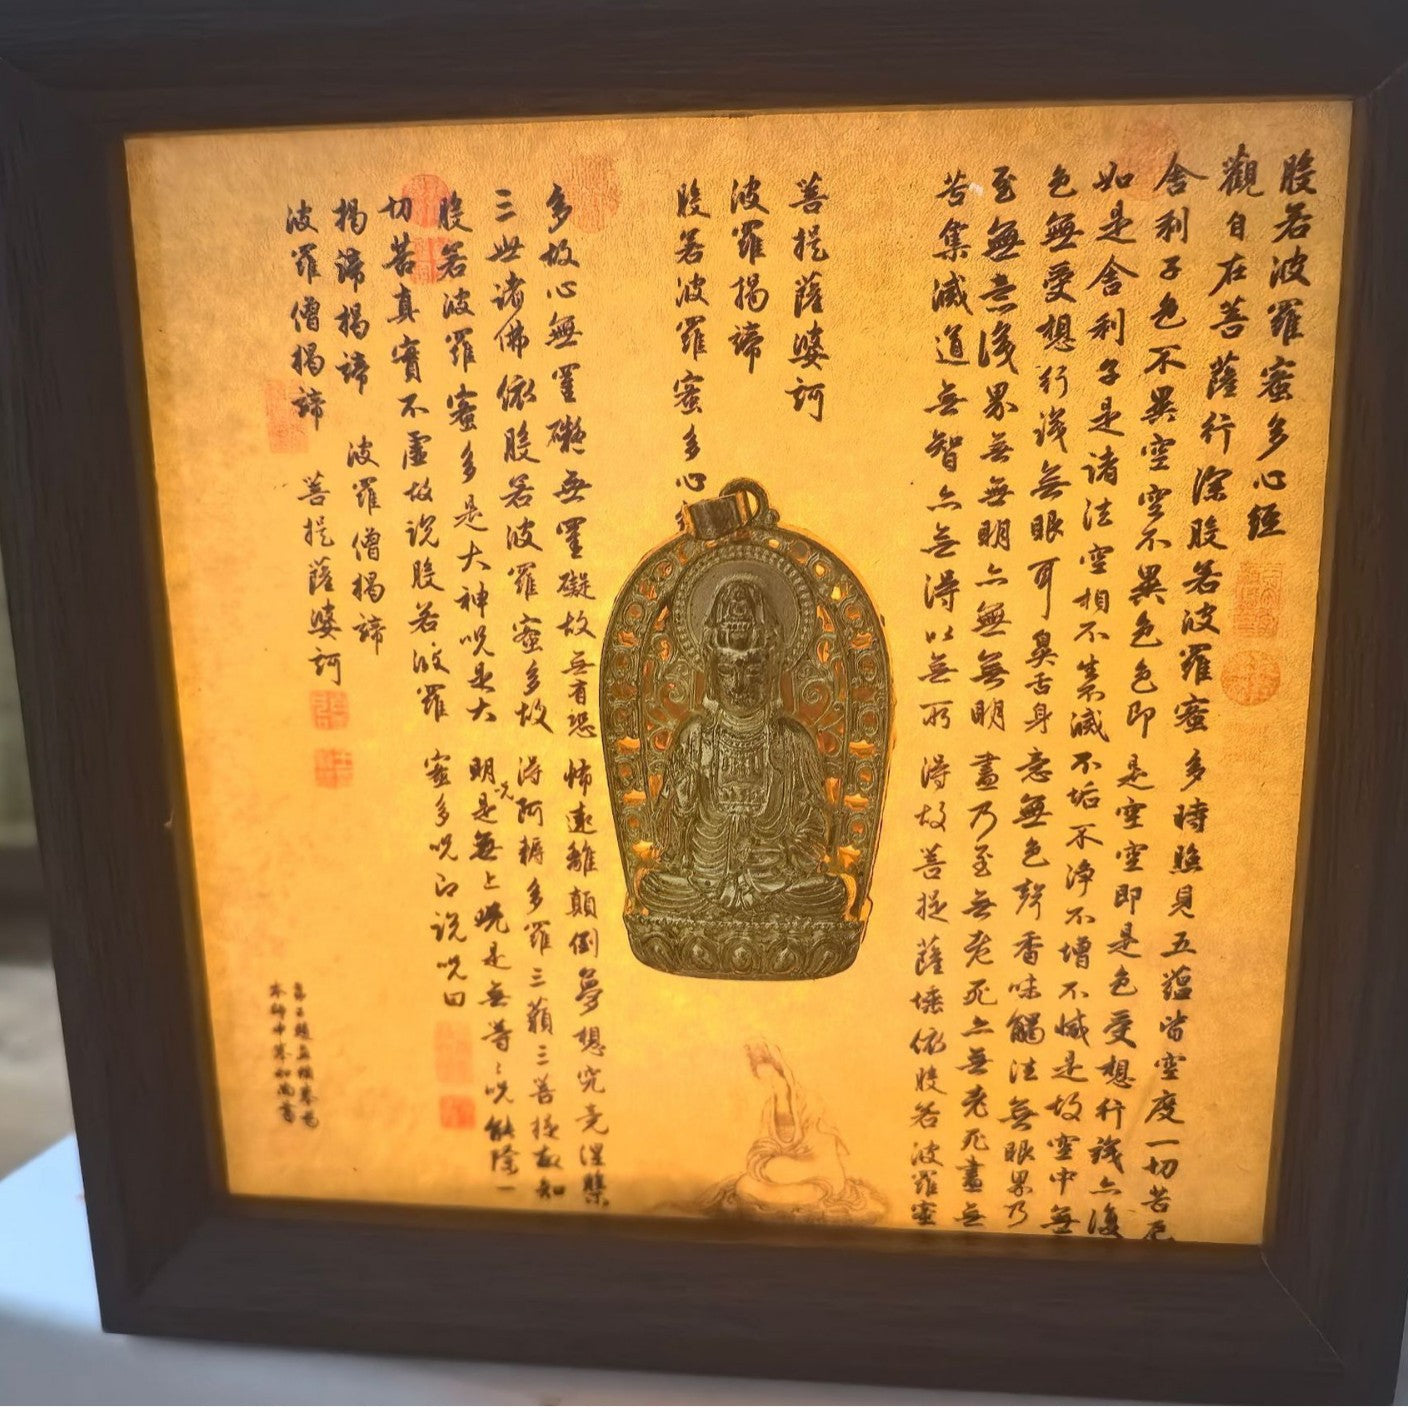 般若波羅蜜多心經
觀自在菩薩行深般若波羅蜜多時照見五蘊皆空度一切苦厄
舍利子色不異空空不異色色即是空空即是色受想行識亦復
如是舍利子是諸法空相不生不滅不垢不淨不增不減是故空中無
色無受想行識無眼耳鼻舌身意無色聲香味觸法無眼界乃
至無意識界無無明亦無無明盡乃至無老死亦無老死盡無
苦集滅道無智亦無得以無所得故菩提薩埵依般若波羅蜜
菩提薩婆訶
波羅揭諦
般若波羅蜜多心
多故心無罣礙無罣礙故無有恐怖遠離顛倒夢想究竟涅槃
三世諸佛依般若波羅蜜多故得阿耨多羅三藐三菩提故知
般若波羅蜜多是大神呪是大明呪是無上呪是無等〻呪能除一
切苦真實不虛故說般若波羅蜜多呪即說呪曰
揭諦揭諦 波羅僧揭諦
波羅僧揭諦 菩提薩婆訶
弟子趙孟頫奉為
本師中峯和尚書